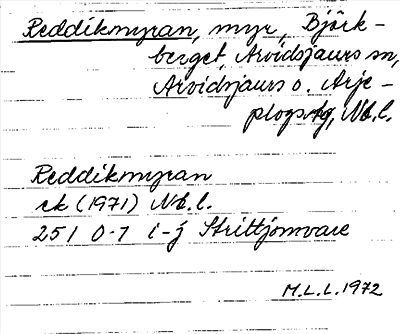 Reddikmyran, myr, Björk-
berget, Arvidsjaurs sn,
Arvidsjaurs o. Arje-
plogs tg, Nb.l.
Reddikmyran
ek (1971) Nb.l.
251 0-1 i-j Strittjomvare
M.L.L. 1972